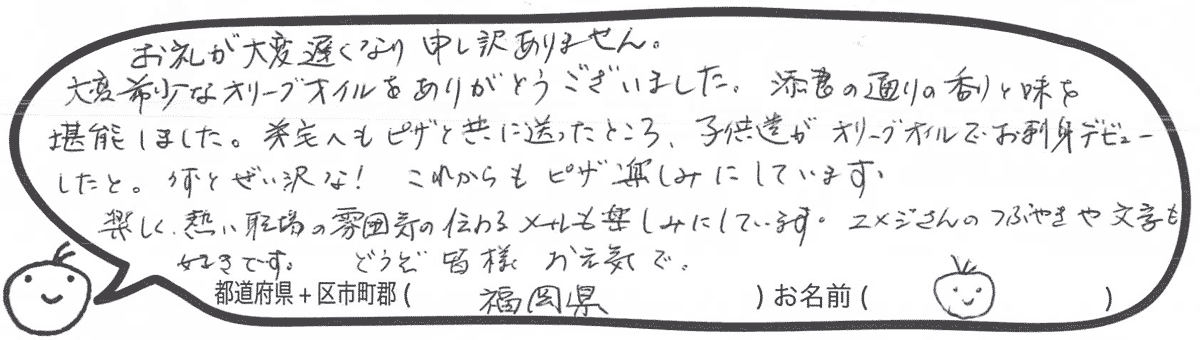 お礼が大変遅くなり 申し訳ありません。
大変希少なオリーブオイルをありがとうございました。添書の通りの香りと味を
堪能しました。弟宅へもピザと共に送ったところ、子供達が オリーブオイルでお刺身デビュー
したと。何とぜい沢な! これからも ピザ 楽しみにしています。
楽しく、熱い職場の雰囲気の伝わるメールも楽しみにしています。ユメジさんのつぶやきや文章も
好きです。 どうぞ 皆様 お元気で。
都道府県+区市町郡( 福岡県 )お名前( )